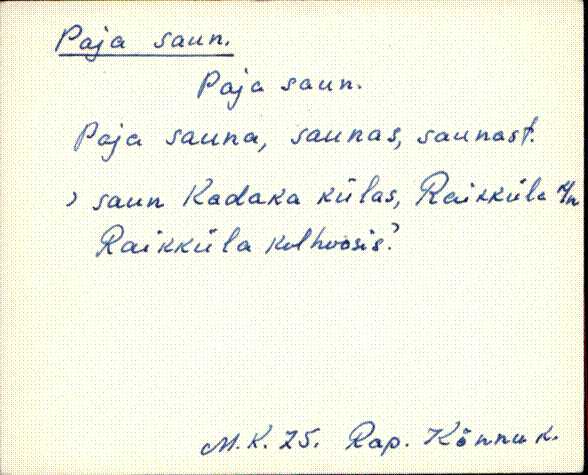 Paja saun.
Paja saun.
Paja sauna, saunas, saunast.
› saun Kadaka külas, Raikküla k/n
Raikküla kolhoosis.›
M.K. 25. Rap. Kõnnu k.